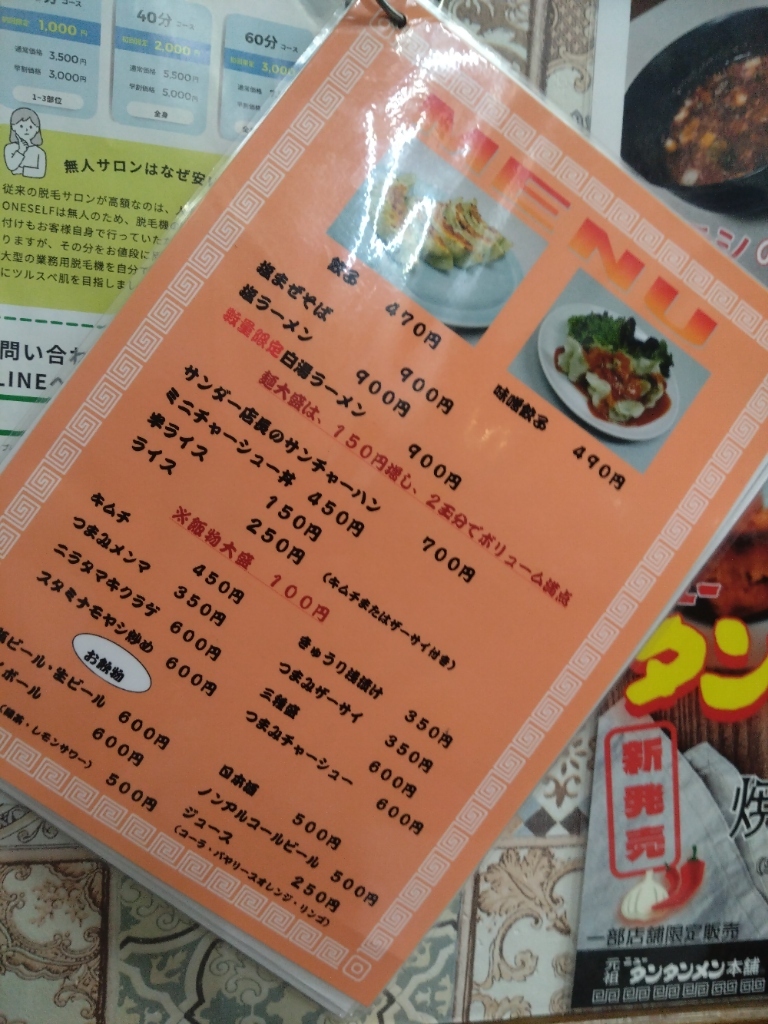 コース
初回限定 1,000円
通常価格 3,500円
学割価格 3,000円
1~3部位
40分 コース
初回限定 2,000円
通常価格 5,500円
学割価格 5,000円
全身
60分 コース
3,000
通常価格
学割価格
無人サロンはなぜ安
従来の脱毛サロンが高額なのは、
ONESELFは無人のため、脱毛機の
付けもお客様自身で行っていた
りますが、その分をお値段に
大型の業務用脱毛機を自分で
にツルスベ肌を目指しまし
問い合わ
LINEへ
MENU
餃子 470円
味噌餃子 490円
塩まぜそば 900円
塩ラーメン 900円
数量限定 白湯ラーメン 900円
麺大盛は、150円増し、2玉分でボリューム満点
サンダー店長のサンチャーハン 700円
ミニチャーシュー丼 450円
半ライス 150円
ライス 250円
(キムチまたはザーサイ付き)
※飯物大盛 100円
キムチ 450円
つまみメンマ 350円
ニラタマキクラゲ 600円
スタミナモヤシ炒め 600円
きゅうり浅漬け 350円
つまみザーサイ 350円
三種盛 600円
つまみチャーシュー 600円
お飲物
ビール・生ビール 600円
ボール 600円
・レモンサワー) 500円
日本酒 500円
ノンアルコールビール 500円
ジュース 250円
(コーラ・バヤリースオレンジ・リンゴ)
タン
新発売
一部店舗限定販売
元祖 ニュー タンタンメン本舗